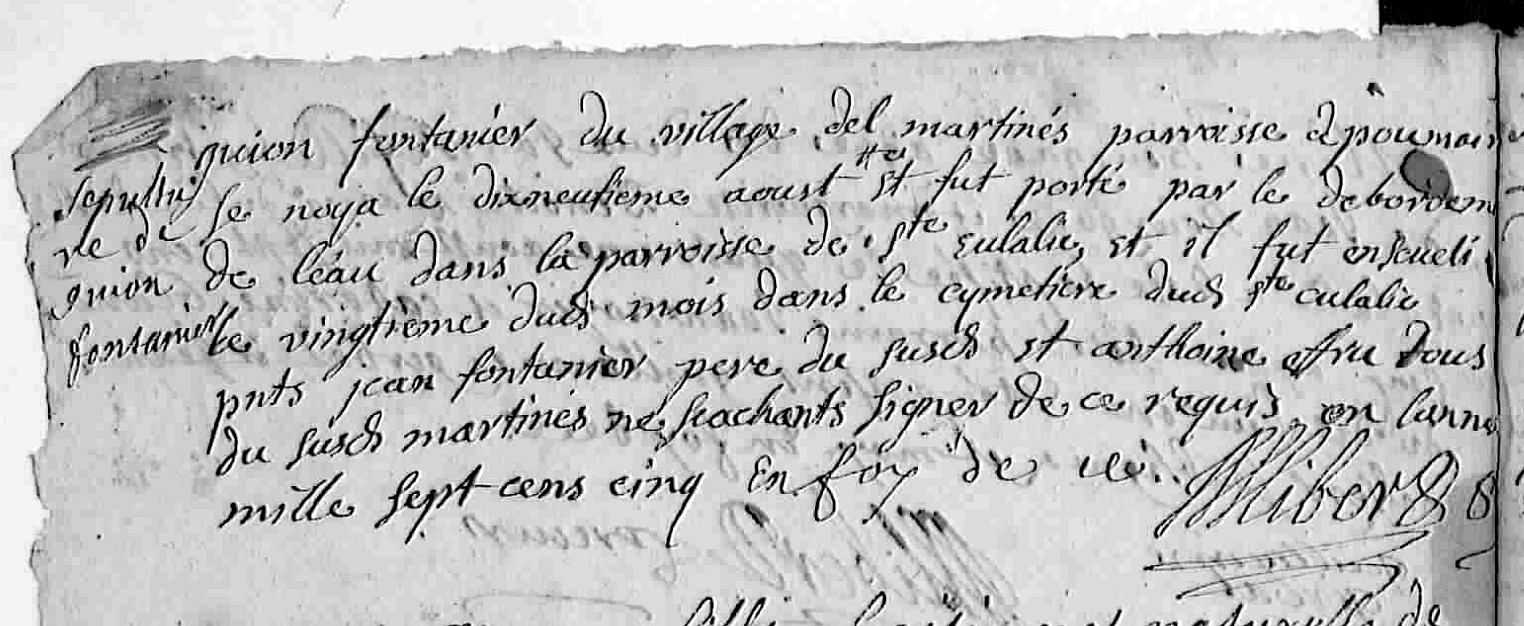 guion fontanier du village del martinés parroisse d
Sepultu
se noya le dixneufieme aoust et fut porté par le debordem
re de
guion
de léau dans la parroisse de ste eulalie, et il fut enseueli
fontanier
le vingtieme dud mois dans le cymetiere dud ste eulalie
pnts jean fontanier pere du susd et anthoine tous
du susd martinés ne scachants signer de ce requis en lanne
mille sept cens cinq En foy de